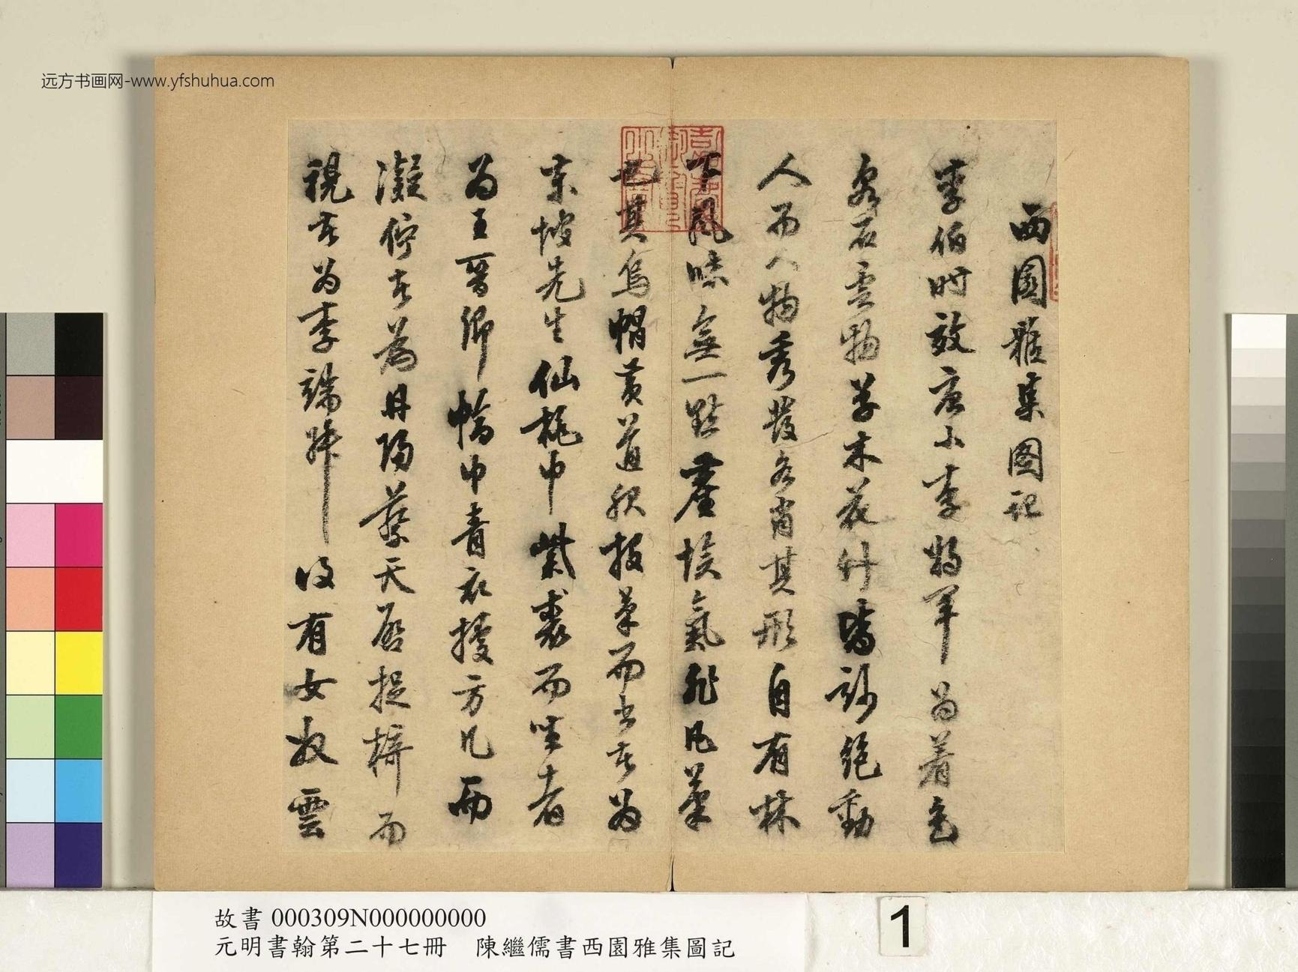 远方书画网-www.yfshuhua.com
西園雅集图记
李伯时效唐小李将军为着色
泉石云物草木花竹皆妙绝动
人而人物秀发各肖其形自有林
下风味无一点尘埃气非凡笔
也其乌帽黄道服投笔而书者为
东坡先生仙桃巾紫裘而坐者
为王晋卿幅巾青衣据方几而
凝伫者为丹阳蔡天启捉椅而
视者为李端叔后有女奴雲
故書 000309N000000000
元明書翰第二十七冊 陳繼儒書西園雅集圖記
1